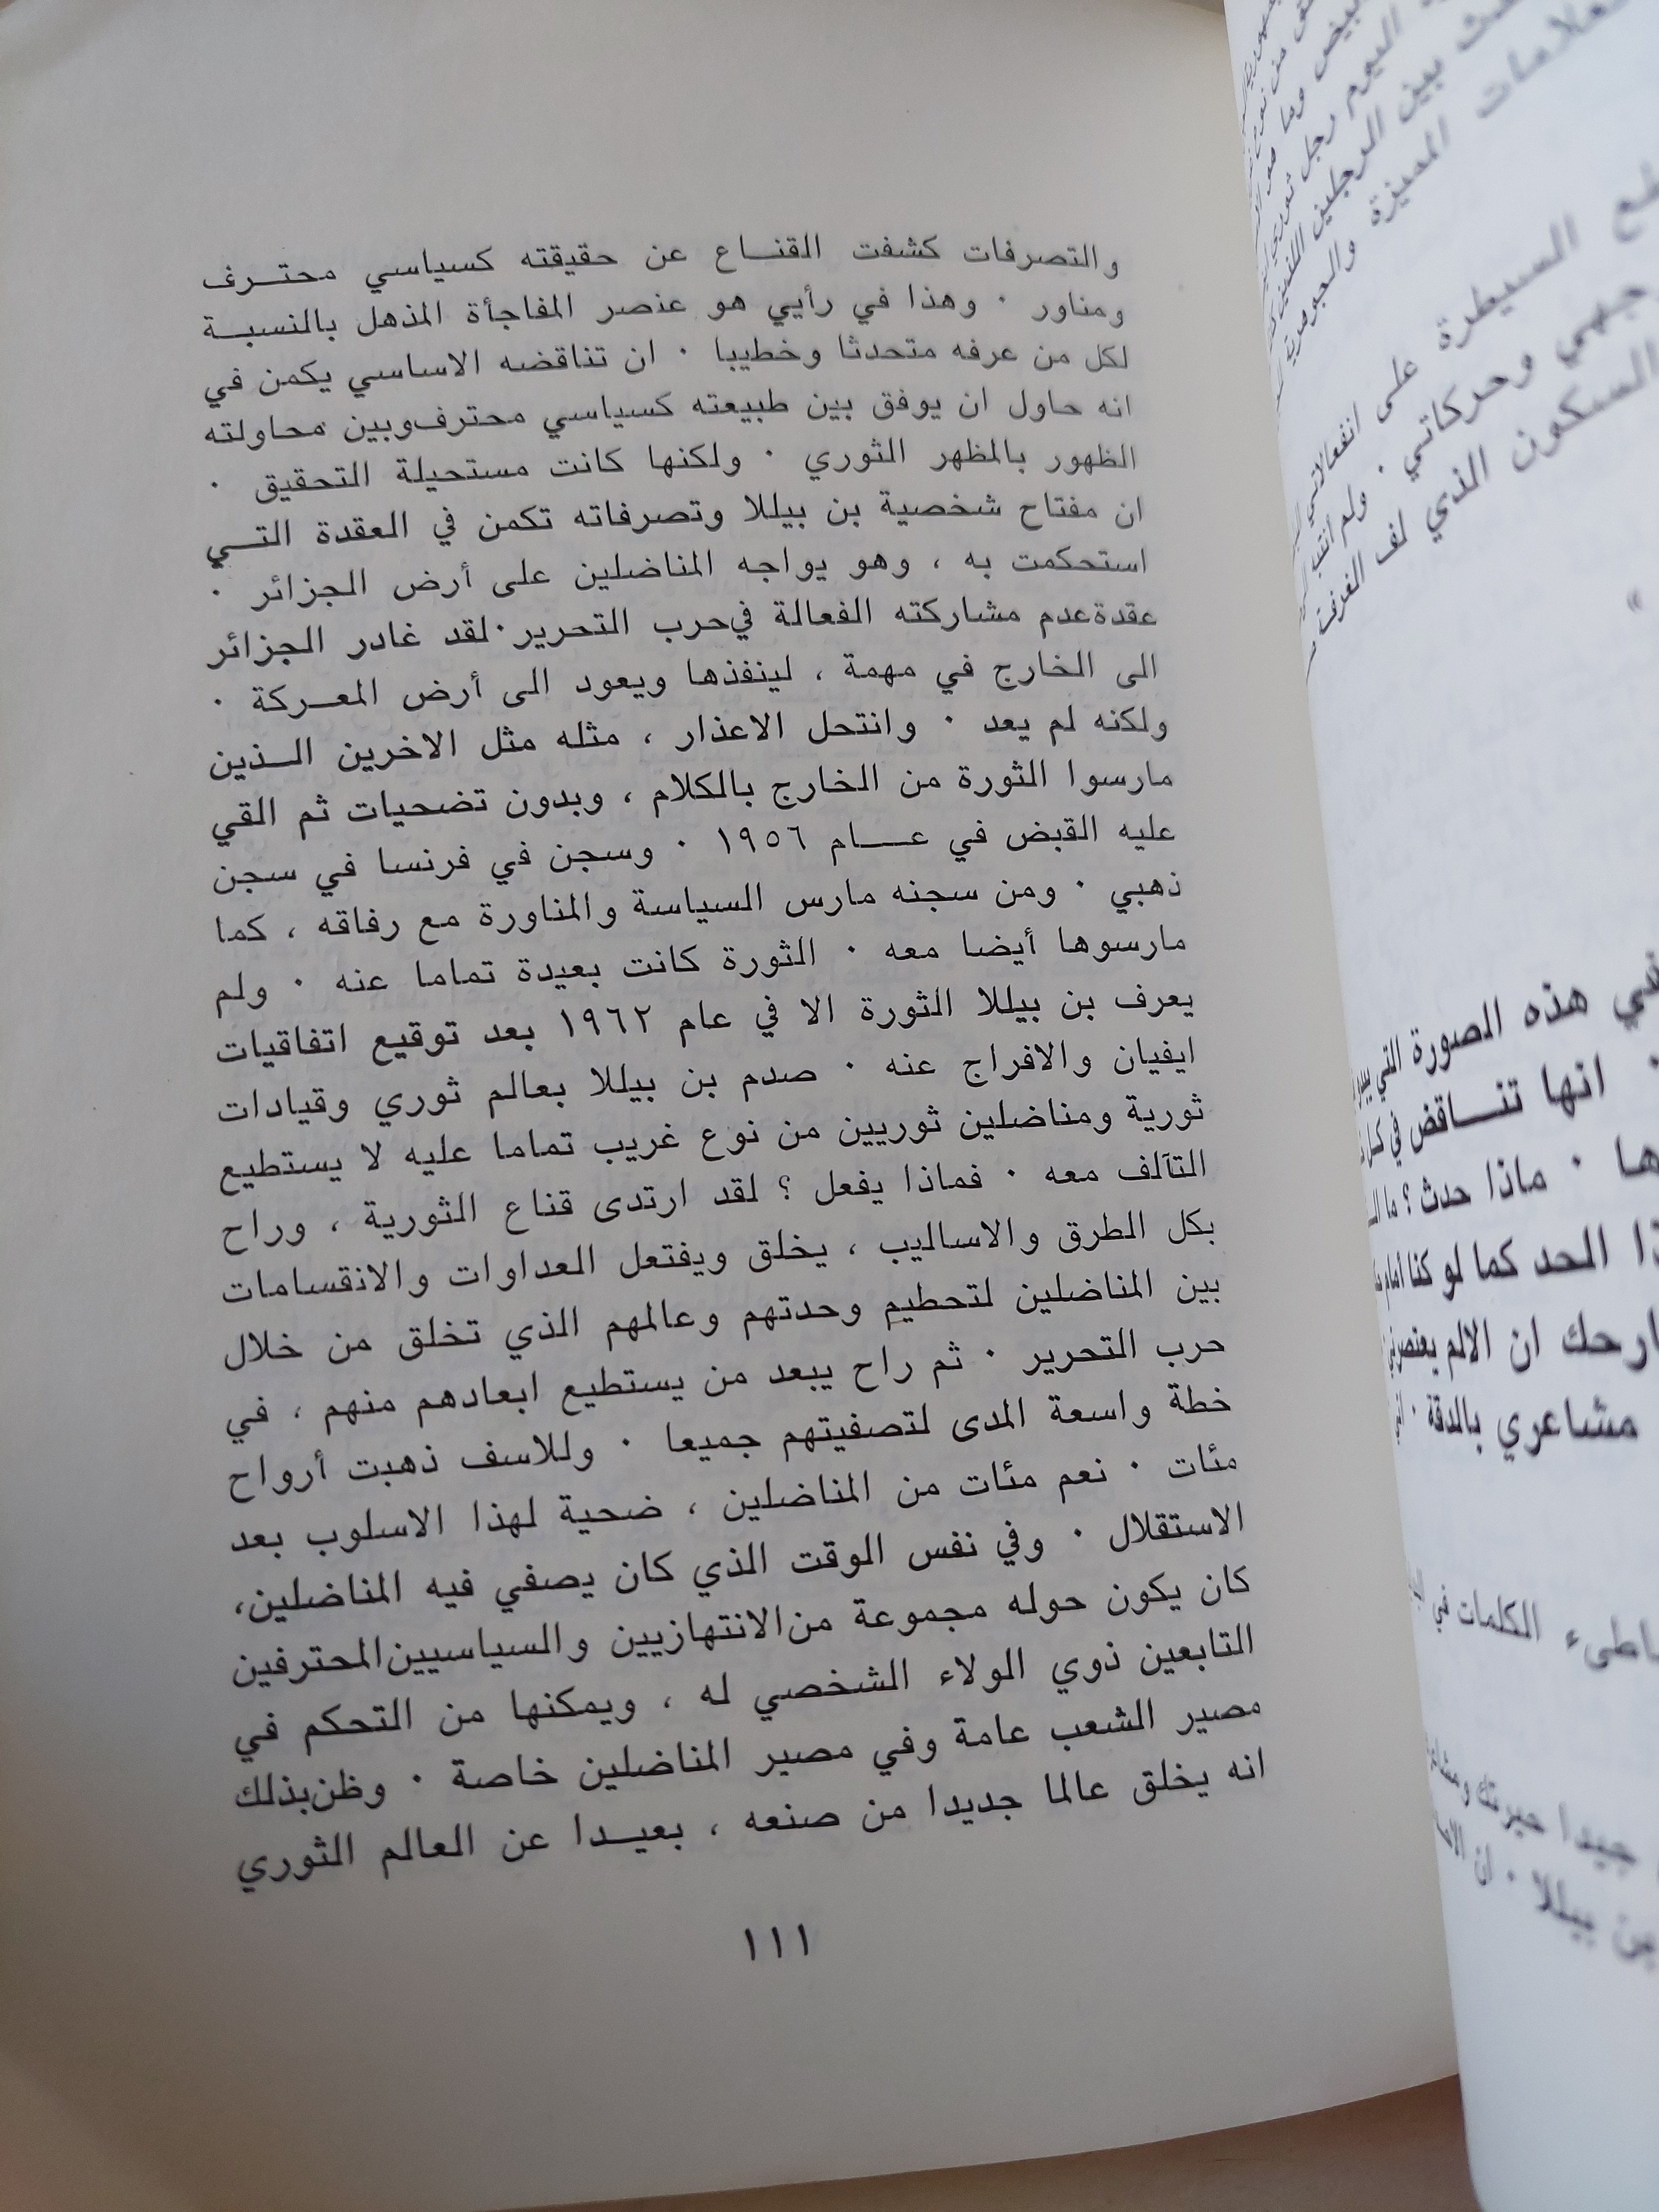 والتصرفات كشفت القنــاع عن حقيقته كسياسي محتــرف
ومناور ٠ وهذا في رأيي هو عنصر المفاجأة المذهل بالنسبــة
لكل من عرفه متحدثا وخطيبا ٠ ان تناقضه الاساسي يكمن في
انه حاول ان يوفق بين طبيعته كسياسي محترف وبين محاولته
الظهور بالمظهر الثوري ٠ ولكنها كانت مستحيلة التحقيق ٠
ان مفتاح شخصية بن بيللا وتصرفاته تكمن في العقدة التــي
استحكمت به ، وهو يواجه المناضلين على أرض الجزائر ٠
عقدة عدم مشاركته الفعالة في حرب التحرير ٠ لقد غادر الجزائر
الى الخارج في مهمة ، لينفذها ويعود الى أرض المعــركة ٠
ولكنه لم يعد ٠ وانتحل الاعذار ، مثله مثل الاخرين الــذين
مارسوا الثورة من الخارج بالكلام ، وبدون تضحيات ثم القي
عليه القبض في عــــام ١٩٥٦ ٠ وسجن في فرنسا في سجن
ذهبي ٠ ومن سجنه مارس السياسة والمناورة مع رفاقه ، كما
مارسوها أيضا معه ٠ الثورة كانت بعيدة تماما عنه ٠ ولم
يعرف بن بيللا الثورة الا في عام ١٩٦٢ بعد توقيع اتفاقيات
ايفيان والافراج عنه ٠ صدم بن بيللا بعالم ثوري وقيادات
ثورية ومناضلين ثوريين من نوع غريب تماما عليه لا يستطيع
التآلف معه ٠ فماذا يفعل ؟ لقد ارتدى قناع الثورية ، وراح
بكل الطرق والاساليب ، يخلق ويفتعل العداوات والانقسامات
بين المناضلين لتحطيم وحدتهم وعالمهم الذي تخلق من خلال
حرب التحرير ٠ ثم راح يبعد من يستطيع ابعادهم منهم ، في
خطة واسعة المدى لتصفيتهم جميعا ٠ وللاسف ذهبت أرواح
مئات ٠ نعم مئات من المناضلين ، ضحية لهذا الاسلوب بعد
الاستقلال ٠ وفي نفس الوقت الذي كان يصفي فيه المناضلين،
كان يكون حوله مجموعة من الانتهازيين والسياسيين المحترفين
التابعين ذوي الولاء الشخصي له ، ويمكنها من التحكم في
مصير الشعب عامة وفي مصير المناضلين خاصة ٠ وظن بذلك
انه يخلق عالما جديدا من صنعه ، بعيــدا عن العالم الثوري
١١١
اليوم رجل ثوري
بين الرجلين اللذين
المميزة والجوهرية
السيطرة على انفعالاتي
وحركاتي ٠ ولم
السكون الذي لف الغرفة
»
في هذه الصورة التي
٠ انها تنــاقض في كل
ماذا حدث ؟ ما
الحد كما لو كنا أمام
ان الالم يعتصرني
مشاعري بالدقة ٠
الكلمات في
جيدا حيرتك
بن بيللا ٠ ان